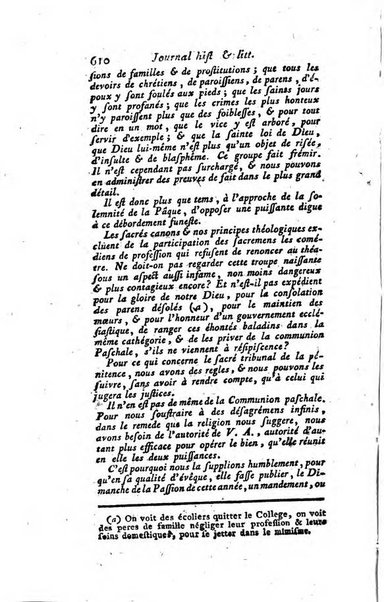 610 Journal hist. & litt.
sions de familles & de prostitutions; que tous les
devoirs de chrétiens, de paroissiens, de parens, d'é-
poux y sont foulés aux pieds; que les saints jours
y sont profanés; que les crimes les plus honteux
n'y paroissent plus que des foiblesses, & pour tout
dire en un mot, que le vice y est adoré, pour
servir d'exemple; & que la sainte loi de Dieu,
que Dieu lui-même n'est plus qu'un objet de risée,
d'insulte & de blasphême. Ce groupe fait frémir.
Il n'est cependant pas surchargé, & nous pouvons
en administrer des preuves de fait dans le plus grand
détail.
Il est donc plus que tems, à l'approche de la so-
lemnité de la Pâque, d'opposer une puissante digue
à ce débordement funeste.
Les sacrés canons & nos principes théologiques ex-
cluent de la participation des sacremens les comé-
diens de profession qui refusent de renoncer au théa-
tre. Ne doit-on pas regarder cette troupe naissante
sous un aspect aussi infame, non moins dangereux
& plus contagieux encore? Et n'est-il pas expédient
pour la gloire de notre Dieu, pour la consolation
des parens désolés (a), pour le maintien des
mœurs, & pour l'honneur d'un gouvernement ecclé-
siastique, de ranger ces éhontés baladins dans la
même cathégorie, & de les priver de la communion
Paschale, s'ils ne viennent à résipiscence?
Pour ce qui concerne le sacré tribunal de la pé-
nitence, nous avons des regles, & nous pouvons les
suivre, sans avoir à rendre compte, qu'à celui qui
jugera les justices.
Il n'en est pas de même de la Communion paschale.
Pour nous soustraire à des désagrémens infinis,
dans le remede que la religion nous suggere, nous
avons besoin de l'autorité de V. A., autorité d'au-
tant plus efficace pour opérer le bien, qu'elle réunit
en elle les deux puissances.
C'est pourquoi nous la supplions humblement, pour
en sa qualité d'évêque, elle fasse publier, le Di-
manche de la Passion de cette année, un mandement, ou
(a) On voit des écoliers quitter le College, on voit
des peres de famille négliger leur profession & leurs
soins domestiques, pour se jetter dans le mimisme.